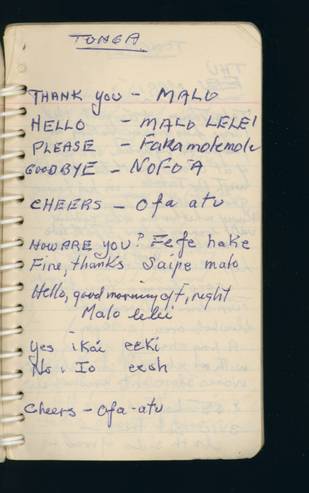 TONGA
THANK YOU - MALO
HELLO - MALO LELEI
PLEASE - Fakamolemole
GOODBYE - NOFO'A
CHEERS - Ofa atu
HOW ARE YOU? Fefe hake
Fine, thanks Saipe malo
Hello, good morning, aft, night
Malo lelei
Yes ikai eeki
No Io
Cheers - Ofa-atu